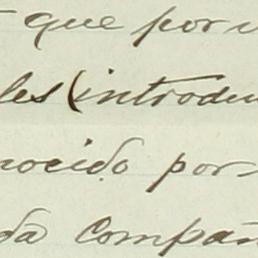 que por
les (introdu
nocido por
da compañ